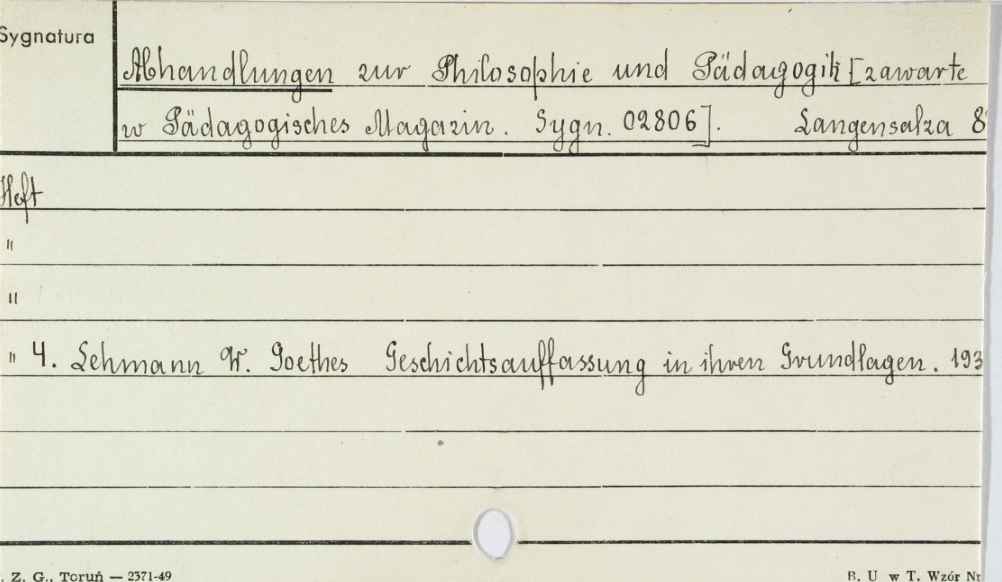 Sygnatura
Abhandlungen zur Philosophie und Pädagogik [zawarte
w Pädagogisches Magazin. Sygn. 02806]. Langensalza 8
Heft
"
"
" 4. Lehmann W. Goethes Geschichtsauffassung in ihren Grundlagen. 193
. Z. G., Toruń — 2371-49
B. U w T. Wzór Nr